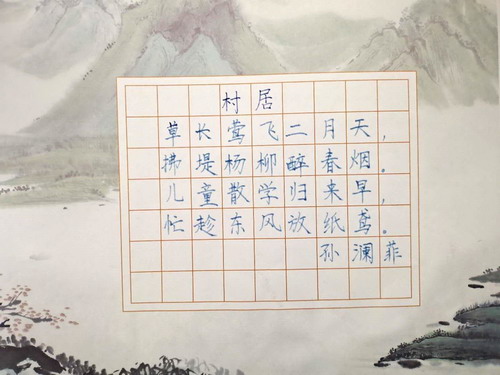 村居
草长莺飞二月天，
拂堤杨柳醉春烟。
儿童散学归来早，
忙趁东风放纸鸢。
孙澜菲